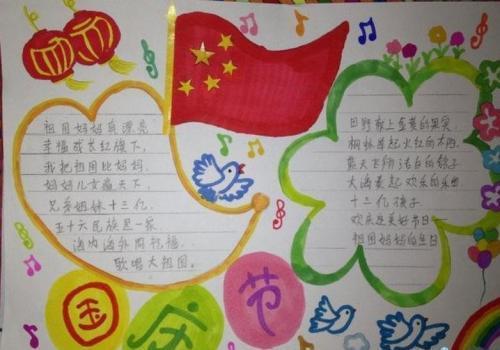 祖国妈妈真漂亮
幸福成长红旗下,
我把祖国比妈妈.
妈妈儿女遍天下,
兄弟姐妹十三亿.
五十六民族是一家.
海内海外同祝福.
歌唱大祖国。
田野献上金黄的果实.
枫林举起火红的
蓝天飞翔洁白的鸽子
大海奏起欢乐的乐曲
十三亿孩子
欢乐庆美好节日——
祖国妈妈的生日
国庆节